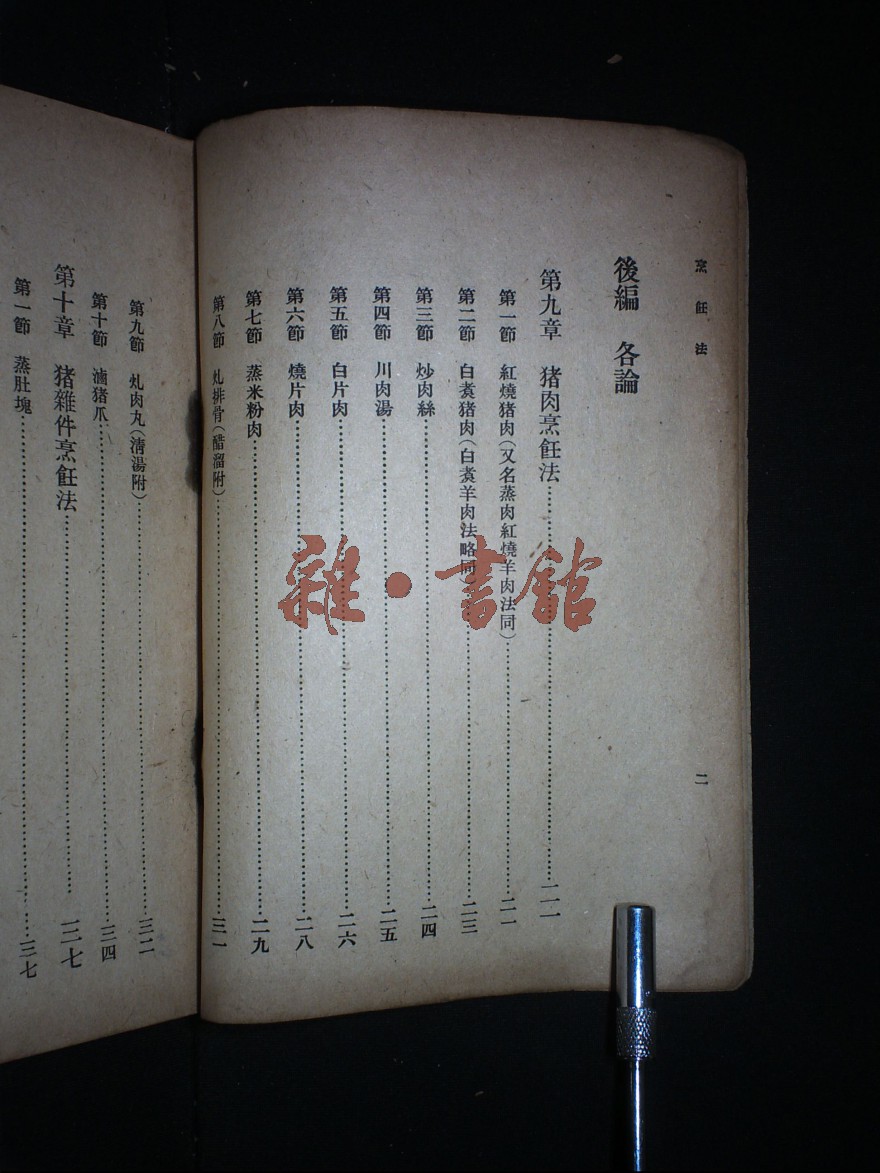 烹飪法
二
後編　各論
第九章　猪肉烹飪法……二一
第一節　紅燒猪肉(又名蒸肉紅燒羊肉法同)……二一
第二節　白煑猪肉(白煑羊肉法略同)……二三
第三節　炒肉絲……二四
第四節　川肉湯……二五
第五節　白片肉……二六
第六節　燒片肉……二八
第七節　蒸米粉肉……二九
第八節　炸排骨(醋溜附)……三一
第九節　炸肉丸(清湯附)……三二
第十節　滷猪爪……三四
第十章　猪雜件烹飪法……三七
第一節　蒸肚塊……三七
雜·書館